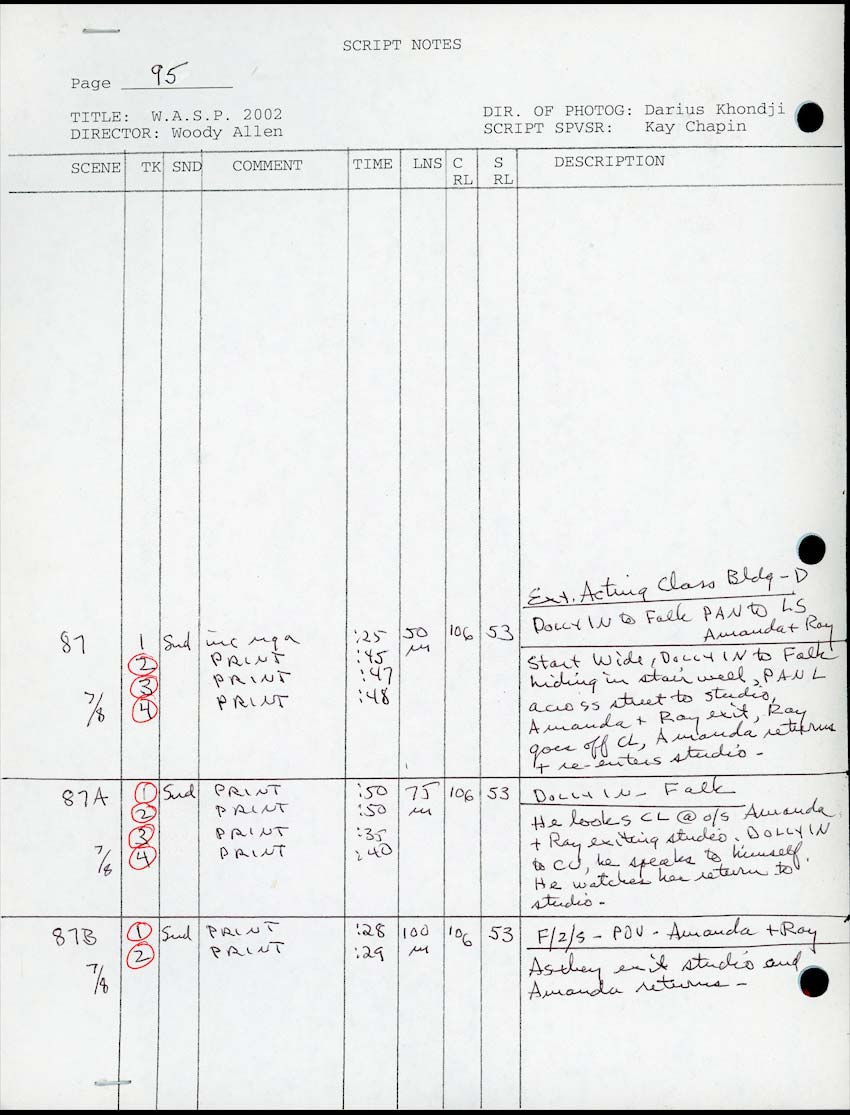 SCRIPT NOTES
Page 95
TITLE: W.A.S.P. 2002
DIRECTOR: Woody Allen
DIR. OF PHOTOG: Darius Khondji
SCRIPT SPVSR: Kay Chapin
SCENE TK SND COMMENT TIME LNS C RL S RL DESCRIPTION
Ext. Acting Class Bldg - D
DOLLY IN to Falk PAN to LS
Amanda + Ray
87 1 Snd inc nga :25 50 106 53
2 PRINT :45
3 PRINT :47
7/8 4 PRINT :48
Start Wide, DOLLY IN to Falk
hiding in stairwell, PAN L
across street to studio,
Amanda + Ray exit, Ray
goes off CL, Amanda returns
+ re-enters studio -
87A 1 Snd PRINT :50 75 106 53
2 PRINT :50
3 PRINT :35
7/8 4 PRINT :40
DOLLY IN - Falk
He looks CL @ o/s Amanda
+ Ray exiting studio. DOLLY IN
to CU, he speaks to himself.
He watches her return to
studio -
87B 1 Snd PRINT :28 100 106 53
7/8 2 PRINT :29
F/2/s - POV - Amanda + Ray
As they exit studio and
Amanda returns -